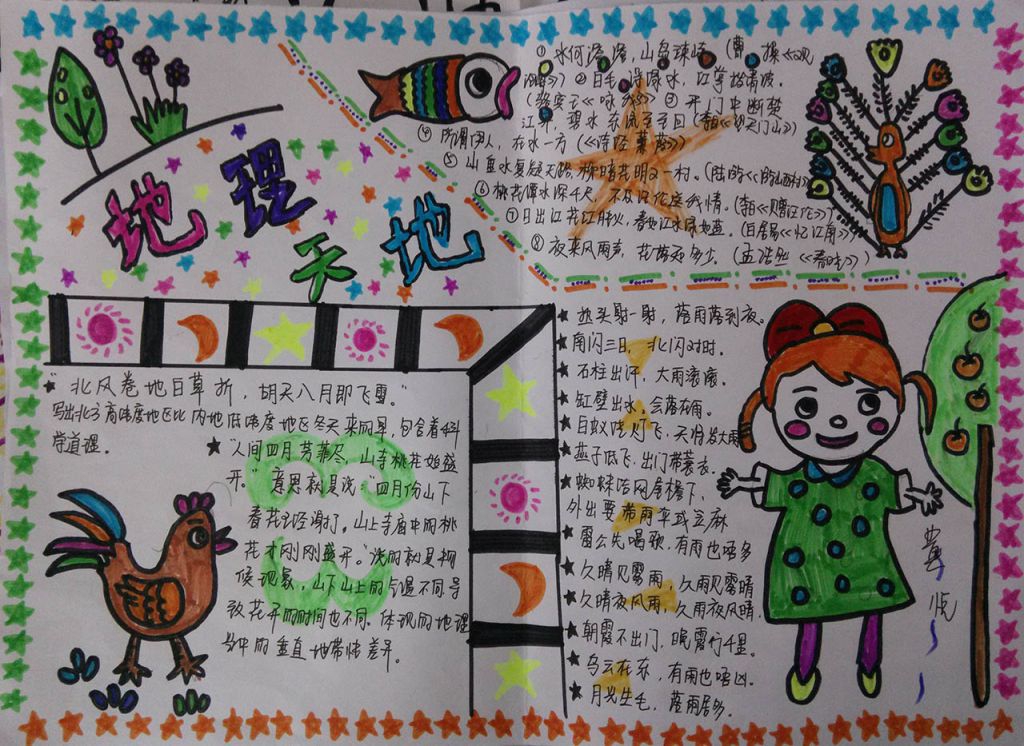 地理天地
① 水何澹澹，山岛竦峙。(曹操《观
沧海》) ② 白毛浮绿水，红掌拨清波。
(骆宾王《咏鹅》) ③ 天门中断楚
江开，碧水东流至
④ 所谓伊人，在水一方《诗经 蒹葭》
⑤ 山重水复疑无路，柳暗花明又一村。
⑥ 桃花潭水深千尺，不及
⑦ 日出江花红胜火，春如江水绿如蓝。(白居易《忆江南》)
⑧ 夜来风雨声，花落知多少。(孟浩然《春晓》)
★ "北风卷地白草折，胡天八月即飞雪。"
写出北方高纬度地区比内地低纬度地区冬天来的早，包含着科
学道理。
★ "人间四月芳菲尽，山寺桃花始盛
开。" 意思就是说："四月份山下
春花已经谢了。山上寺庙中的桃
花才刚刚盛开。"说的就是物
候现象，山下山上的气温不同导
致花开的时间也不同。体现的地理
学中的垂直地带性差异。
★ 热头射一射，落雨落到夜。
★ 南闪三日，北闪对时。
★ 石柱出汗，大雨滚滚。
★ 缸壁出水，会落
★ 白蚁吐灯飞，天将发大雨
★ 燕子低飞，出门带蓑衣。
★ 蜘蛛结网屋檐下，
外出要带雨伞或
★ 雷公先唱歌，有雨也唔多
★ 久晴见雾雨，久雨见雾晴
★ 久晴夜风雨，久雨夜风晴
★ 朝霞不出门，晚霞行千里。
★ 乌云在东，有雨也唔凶。
★ 月光生毛，落雨居多。